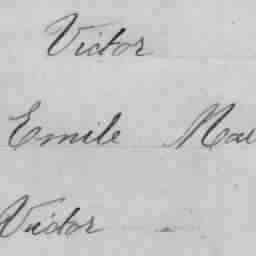 Victor
Emile Noel
Victor